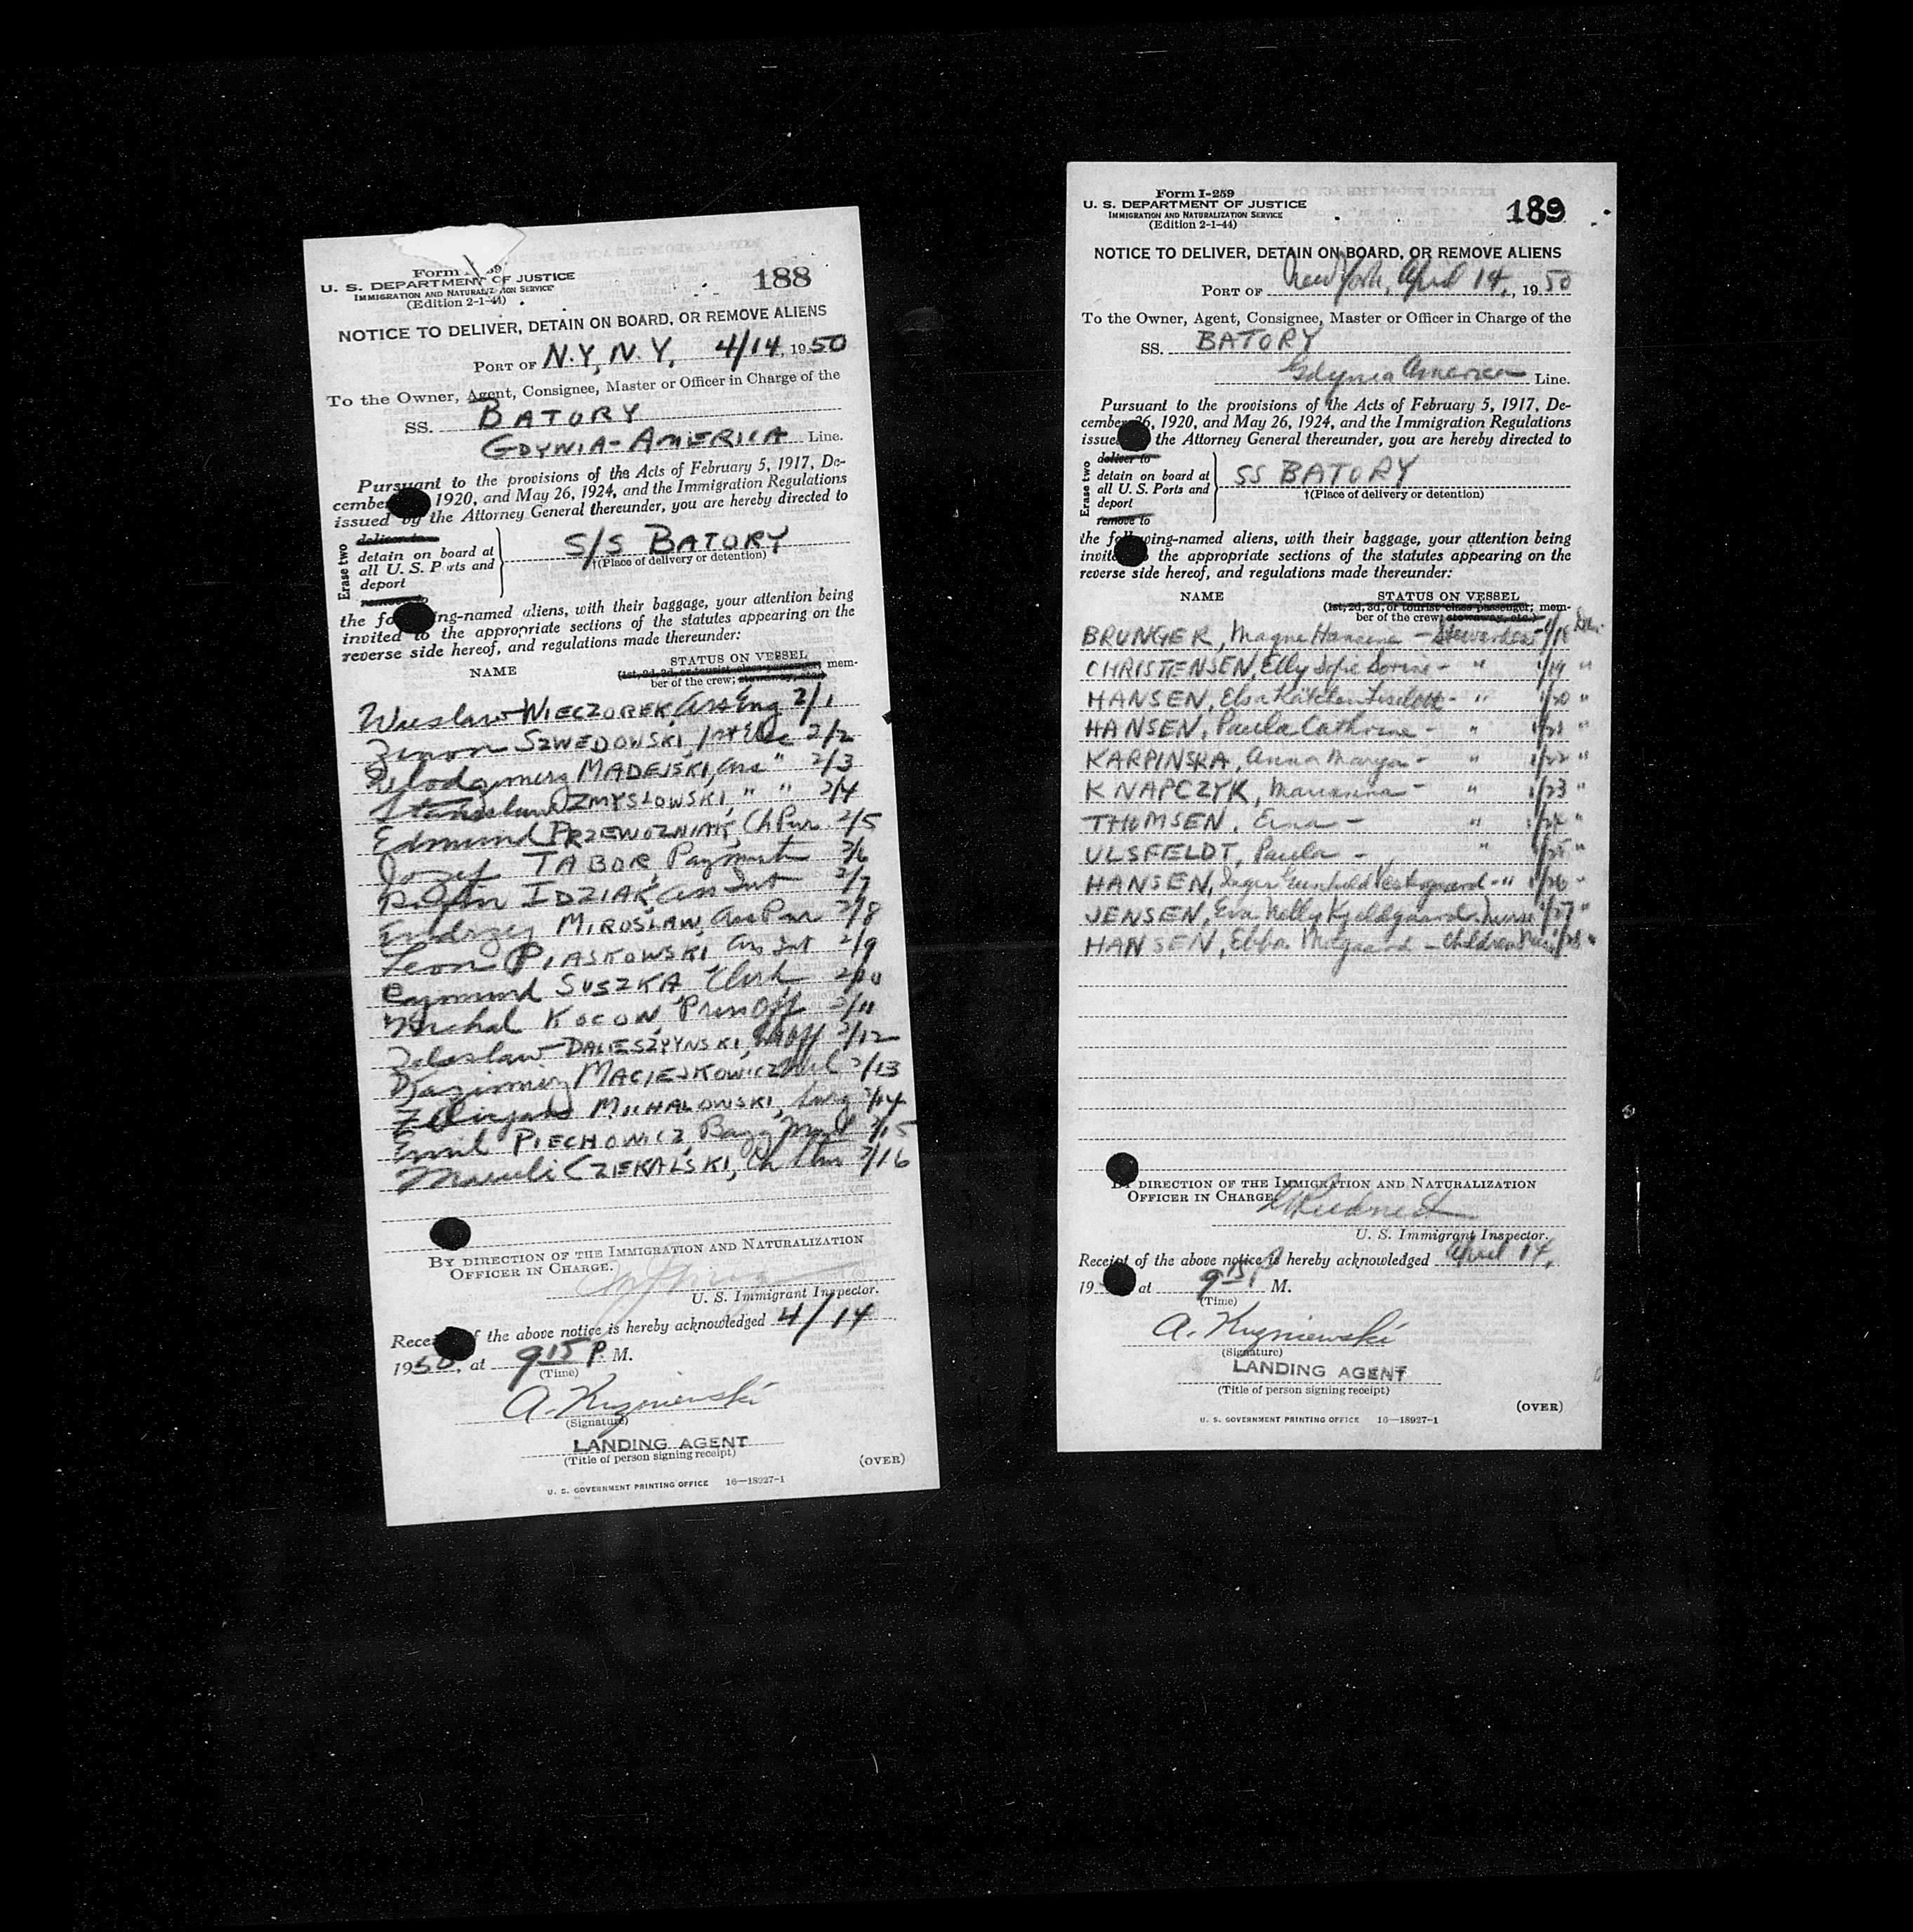 Form I-259
U. S. DEPARTMENT OF JUSTICE
IMMIGRATION AND NATURALIZATION SERVICE
(Edition 2-1-44)
188
NOTICE TO DELIVER, DETAIN ON BOARD, OR REMOVE ALIENS
PORT OF N.Y, N.Y, 4/14, 1950
To the Owner, Agent, Consignee, Master or Officer in Charge of the
SS. BATORY
GDYNIA-AMERICA Line.
Pursuant to the provisions of the Acts of February 5, 1917, De-
cember 1920, and May 26, 1924, and the Immigration Regulations
issued by the Attorney General thereunder, you are hereby directed to
Erase two
deliver to
detain on board at
all U. S. Ports and
deport
remove to
S/S BATORY
†(Place of delivery or detention)
the following-named aliens, with their baggage, your attention being
invited to the appropriate sections of the statutes appearing on the
reverse side hereof, and regulations made thereunder:
NAME
STATUS ON VESSEL
(1st, 2d, 3d, or tourist class passenger; mem-
ber of the crew; stowaway, etc.)
Wieslaw WIECZOREK, Ass Eng 2/1
Zenon SZWEDOWSKI, 2/2
MADEJSKI, Ass " 2/3
ZMYSLOWSKI, " " 2/4
Edmund PRZEWOZNIAK, Ch Pur 2/5
Jozef TABOR, Paymast 2/6
IDZIAK, Ass Int 2/7
Andrzej MIROSLAW, Ass Pur 2/8
Leon PIASKOWSKI Ass Int 2/9
Rajmund SUSZKA Clerk 2/10
Michal KOCON, Press Off 2/11
DALESZYYNSKI, Off 2/12
Kazimierz MACIEJKOWICZ 2/13
MICHALOWSKI, Surg 2/14
Emil PIECHOWICZ, Bagg Mast 2/15
CZIEKALSKI, Ch 2/16
BY DIRECTION OF THE IMMIGRATION AND NATURALIZATION
OFFICER IN CHARGE.
U. S. Immigrant Inspector.
Receipt of the above notice is hereby acknowledged 4/14
1950, at 9 15 P. M.
(Time)
A. Kuzniewski
(Signature)
LANDING AGENT
(Title of person signing receipt)
(OVER)
U. S. GOVERNMENT PRINTING OFFICE 16—18927-1
Form I-259
U. S. DEPARTMENT OF JUSTICE
IMMIGRATION AND NATURALIZATION SERVICE
(Edition 2-1-44)
189
NOTICE TO DELIVER, DETAIN ON BOARD, OR REMOVE ALIENS
PORT OF New York, April 14, 1950
To the Owner, Agent, Consignee, Master or Officer in Charge of the
SS. BATORY
Gdynia America Line.
Pursuant to the provisions of the Acts of February 5, 1917, De-
cember 26, 1920, and May 26, 1924, and the Immigration Regulations
issued the Attorney General thereunder, you are hereby directed to
Erase two
deliver to
detain on board at
all U. S. Ports and
deport
remove to
SS BATORY
†(Place of delivery or detention)
the following-named aliens, with their baggage, your attention being
invited the appropriate sections of the statutes appearing on the
reverse side hereof, and regulations made thereunder:
NAME
STATUS ON VESSEL
(1st, 2d, 3d, or tourist class passenger; mem-
ber of the crew; stowaway, etc.)
BRUNGER, Magne Hansine - Stewardess - 1/18
CHRISTENSEN, Elly Sofie Sorine - " 1/19 "
HANSEN, Elsa Katchen Liselott - " 1/20 "
HANSEN, Paula Cathrine - " 1/21 "
KARPINSKA, Anna Marya - " 1/22 "
KNAPCZYK, Marianna - " 1/23 "
THOMSEN, Erna - " 1/24 "
ULSFELDT, Paula - " 1/25 "
HANSEN, Inger Gunhild Vestergaard - " 1/26 "
JENSEN, Eva Nelly Kjeldgaard - Nurse 1/27 "
HANSEN, Ebba - Children 1/28 "
BY DIRECTION OF THE IMMIGRATION AND NATURALIZATION
OFFICER IN CHARGE.
U. S. Immigrant Inspector.
Receipt of the above notice is hereby acknowledged April 14,
19 at 9 15 P M.
(Time)
A. Kuzniewski
(Signature)
LANDING AGENT
(Title of person signing receipt)
(OVER)
U. S. GOVERNMENT PRINTING OFFICE 16—18927-1